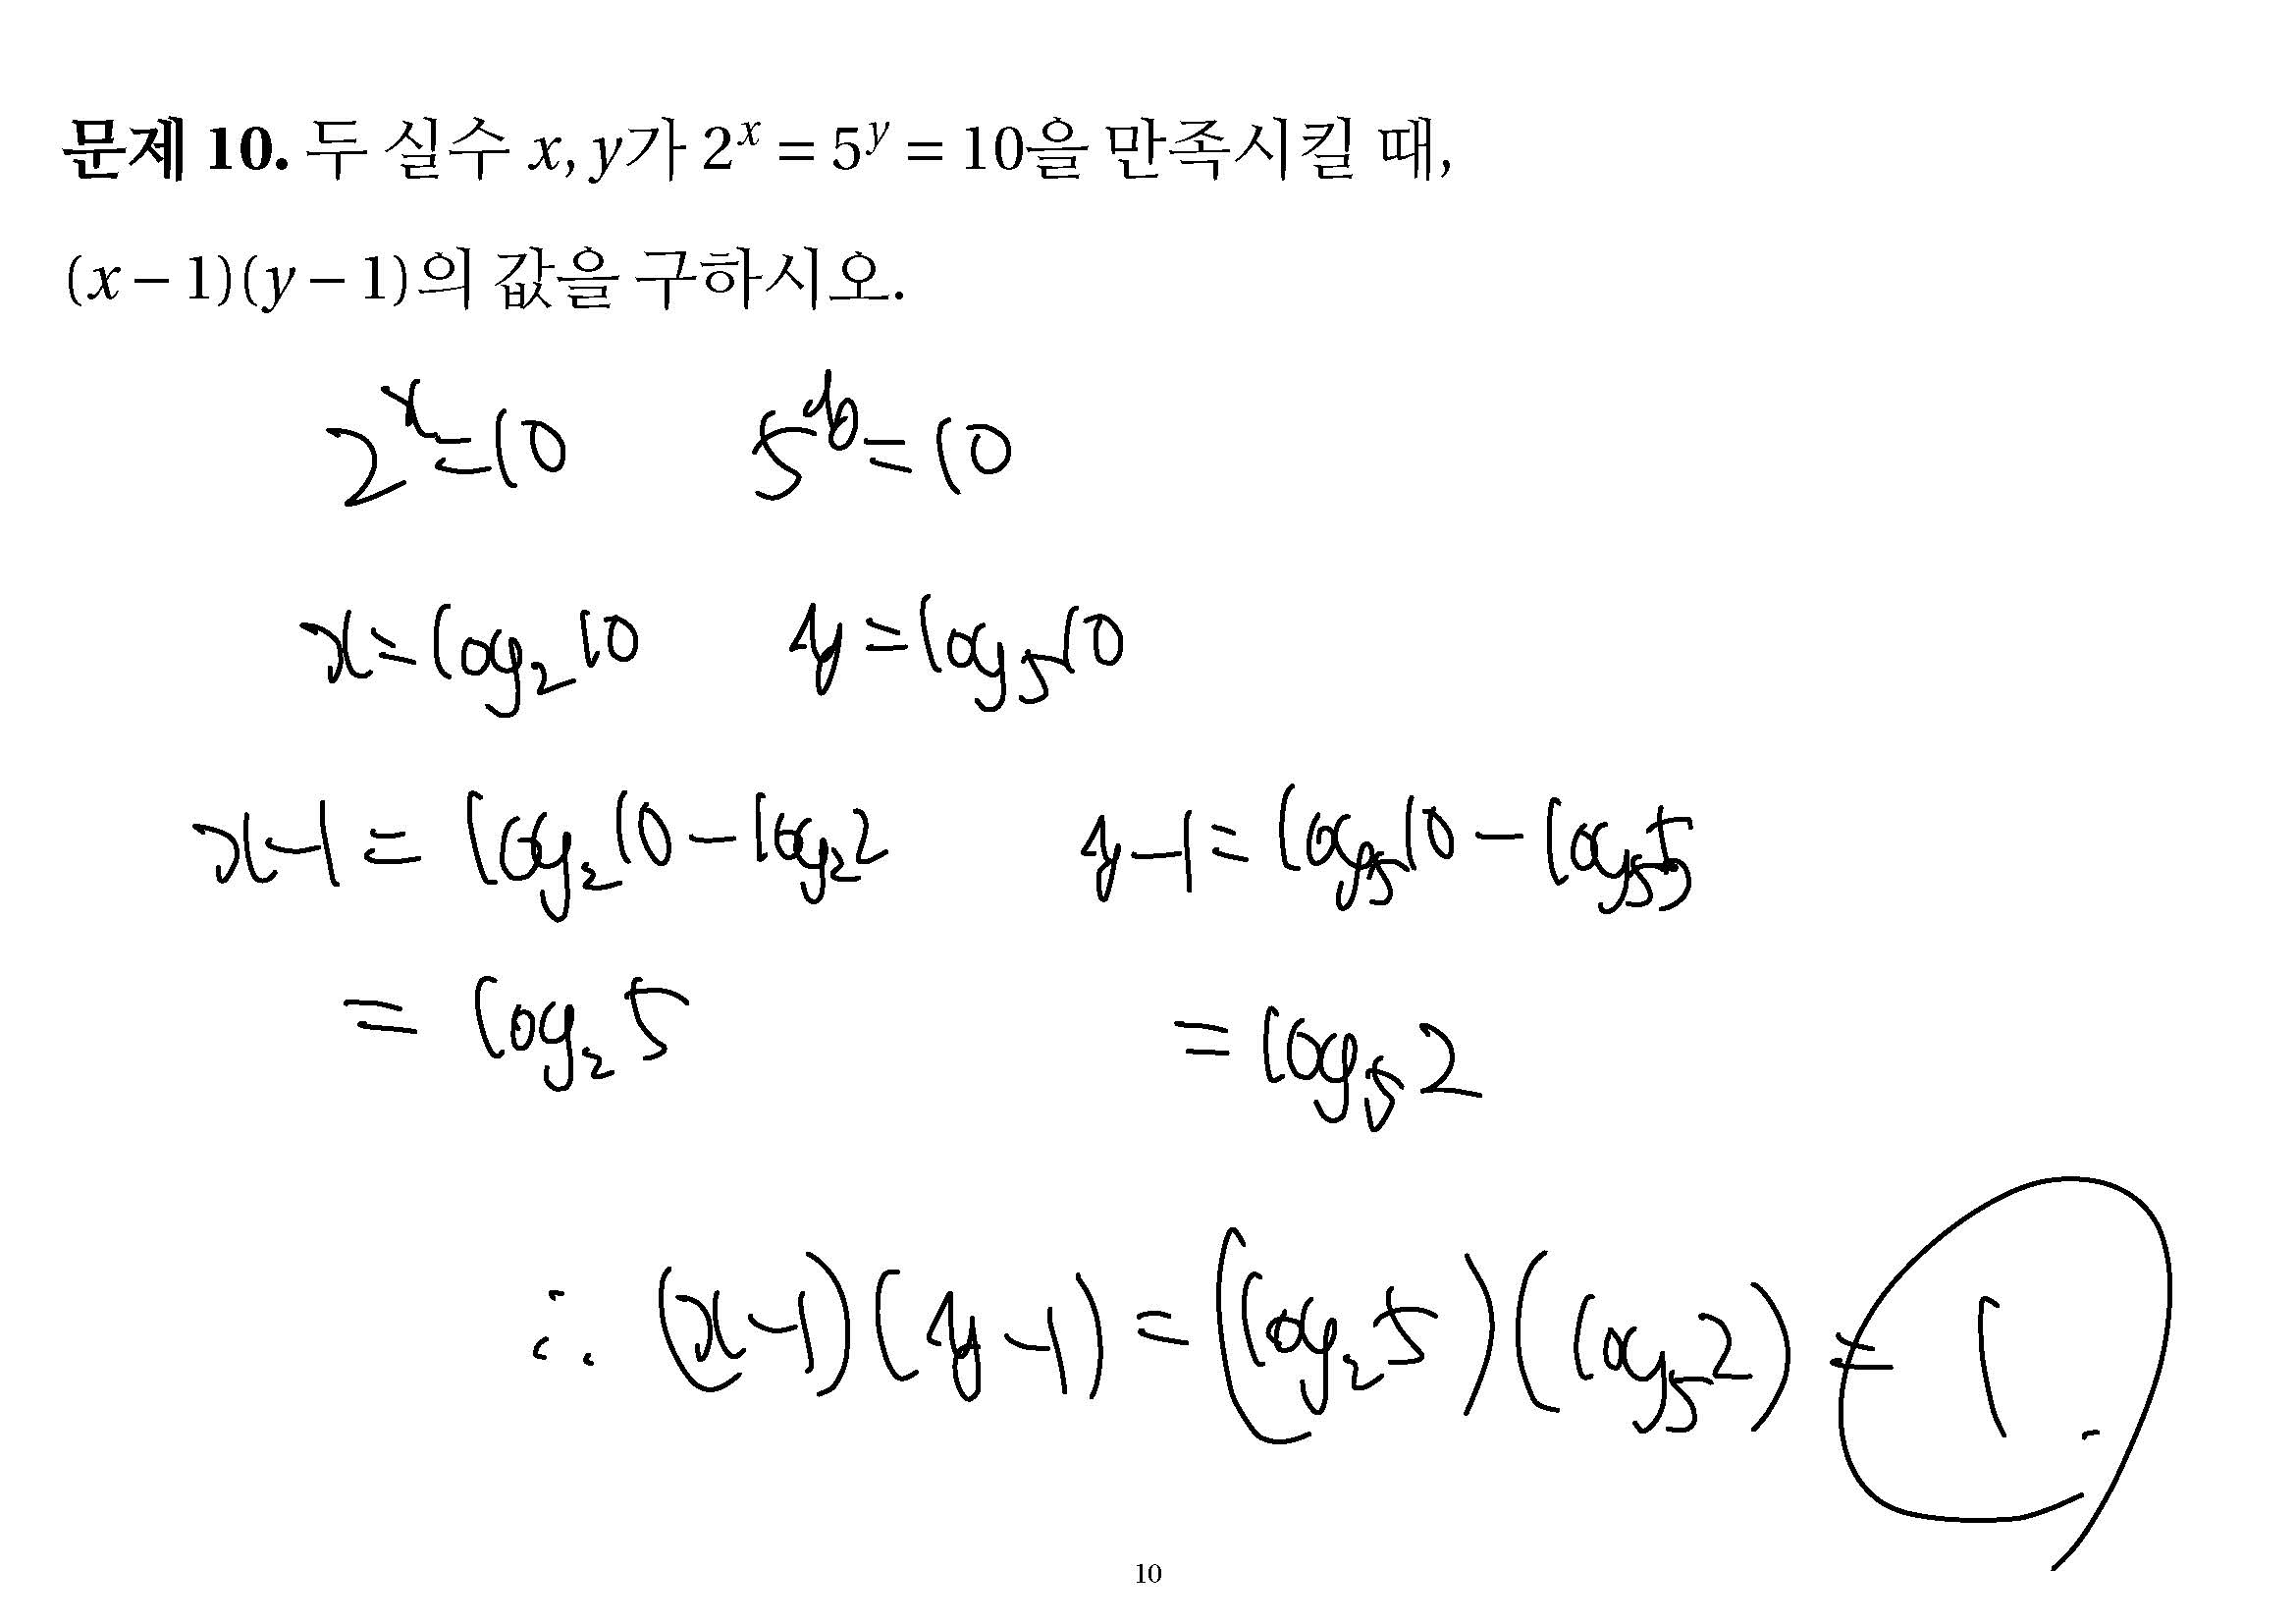 문제 10. 두 실수 x, y가 2^x = 5^y = 10을 만족시킬 때,
(x − 1)(y − 1)의 값을 구하시오.
2^x = 10    5^y = 10
x = log_2 10    y = log_5 10
x − 1 = log_2 10 − log_2 2    y − 1 = log_5 10 − log_5 5
= log_2 5    = log_5 2
∴ (x − 1)(y − 1) = (log_2 5)(log_5 2) = 1.
10